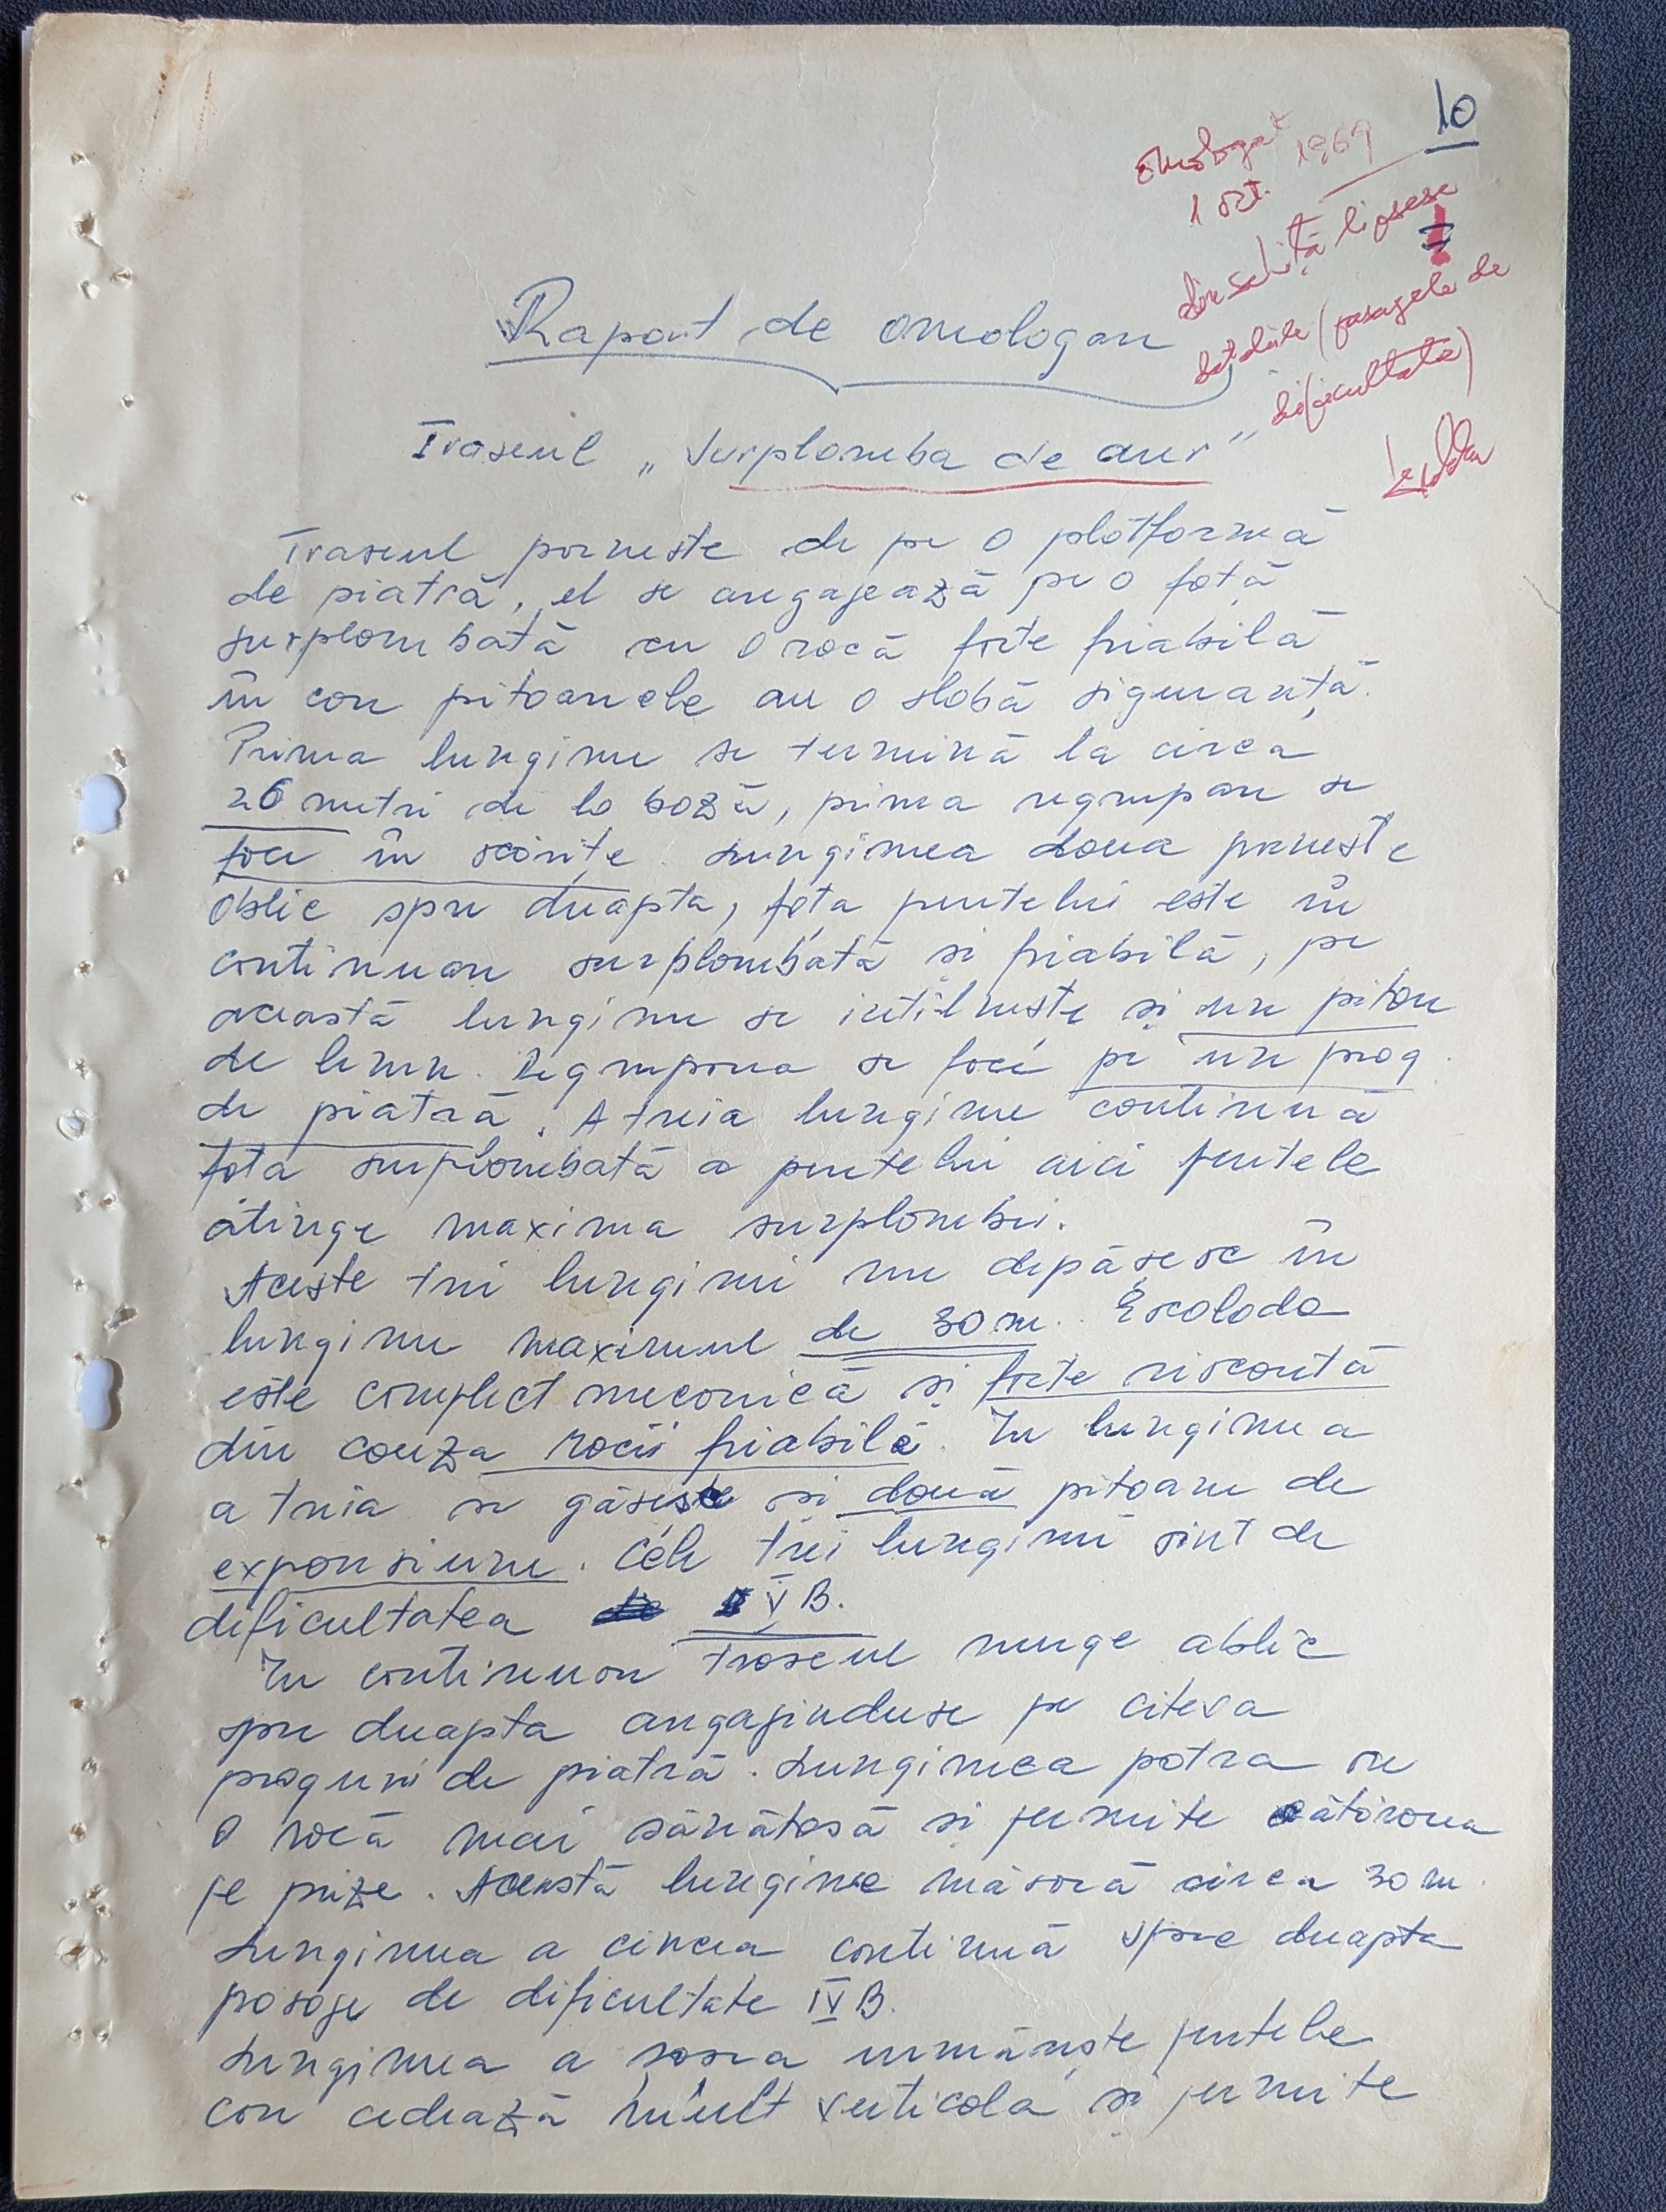 10
omologat
1 oct. 1969
din schiță lipsesc
detaliile (pasagele de
dificultate)
Raport de omologare
Traseul „Surplomba de aur"
Traseul porneste de pe o platformă
de piatră, el se angajează pe o față
surplombată cu o rocă forte friabilă
în care pitoanele au o slabă siguranță.
Prima lungime se termină la circa
26 metri de la bază, prima regrupare se
face în scărițe. Lungimea doua porneste
oblic spre dreapta, fața peretelui este în
continuare surplombată și friabilă, pe
această lungime se intîlneste și un piton
de lemn. Regruparea se face pe un prag
de piatră. A treia lungime continuă
fata surplombată a peretelui aici peretele
atinge maxima surplombei.
Aceste trei lungimi nu depășesc în
lungime maximul de 30 m. Escalada
este complect mecanică și forte riscantă
din cauza rocii friabilă. In lungimea
a treia se găseste și două pitoane de
expansiune. Cele trei lungimi sint de
dificultatea V B.
In continuare traseul merge oblic
spre dreapta angajinduse pe citeva
praguri de piatră. Lungimea patra are
o rocă mai sănătosă și permite cătărarea
pe prize. Această lungime măsoră circa 30 m.
Lungimea a cincea continuă spre dreapta
pasaje de dificultate IV B.
Lungimea a sasea urmărește peretele
care cedează mult verticala și permite